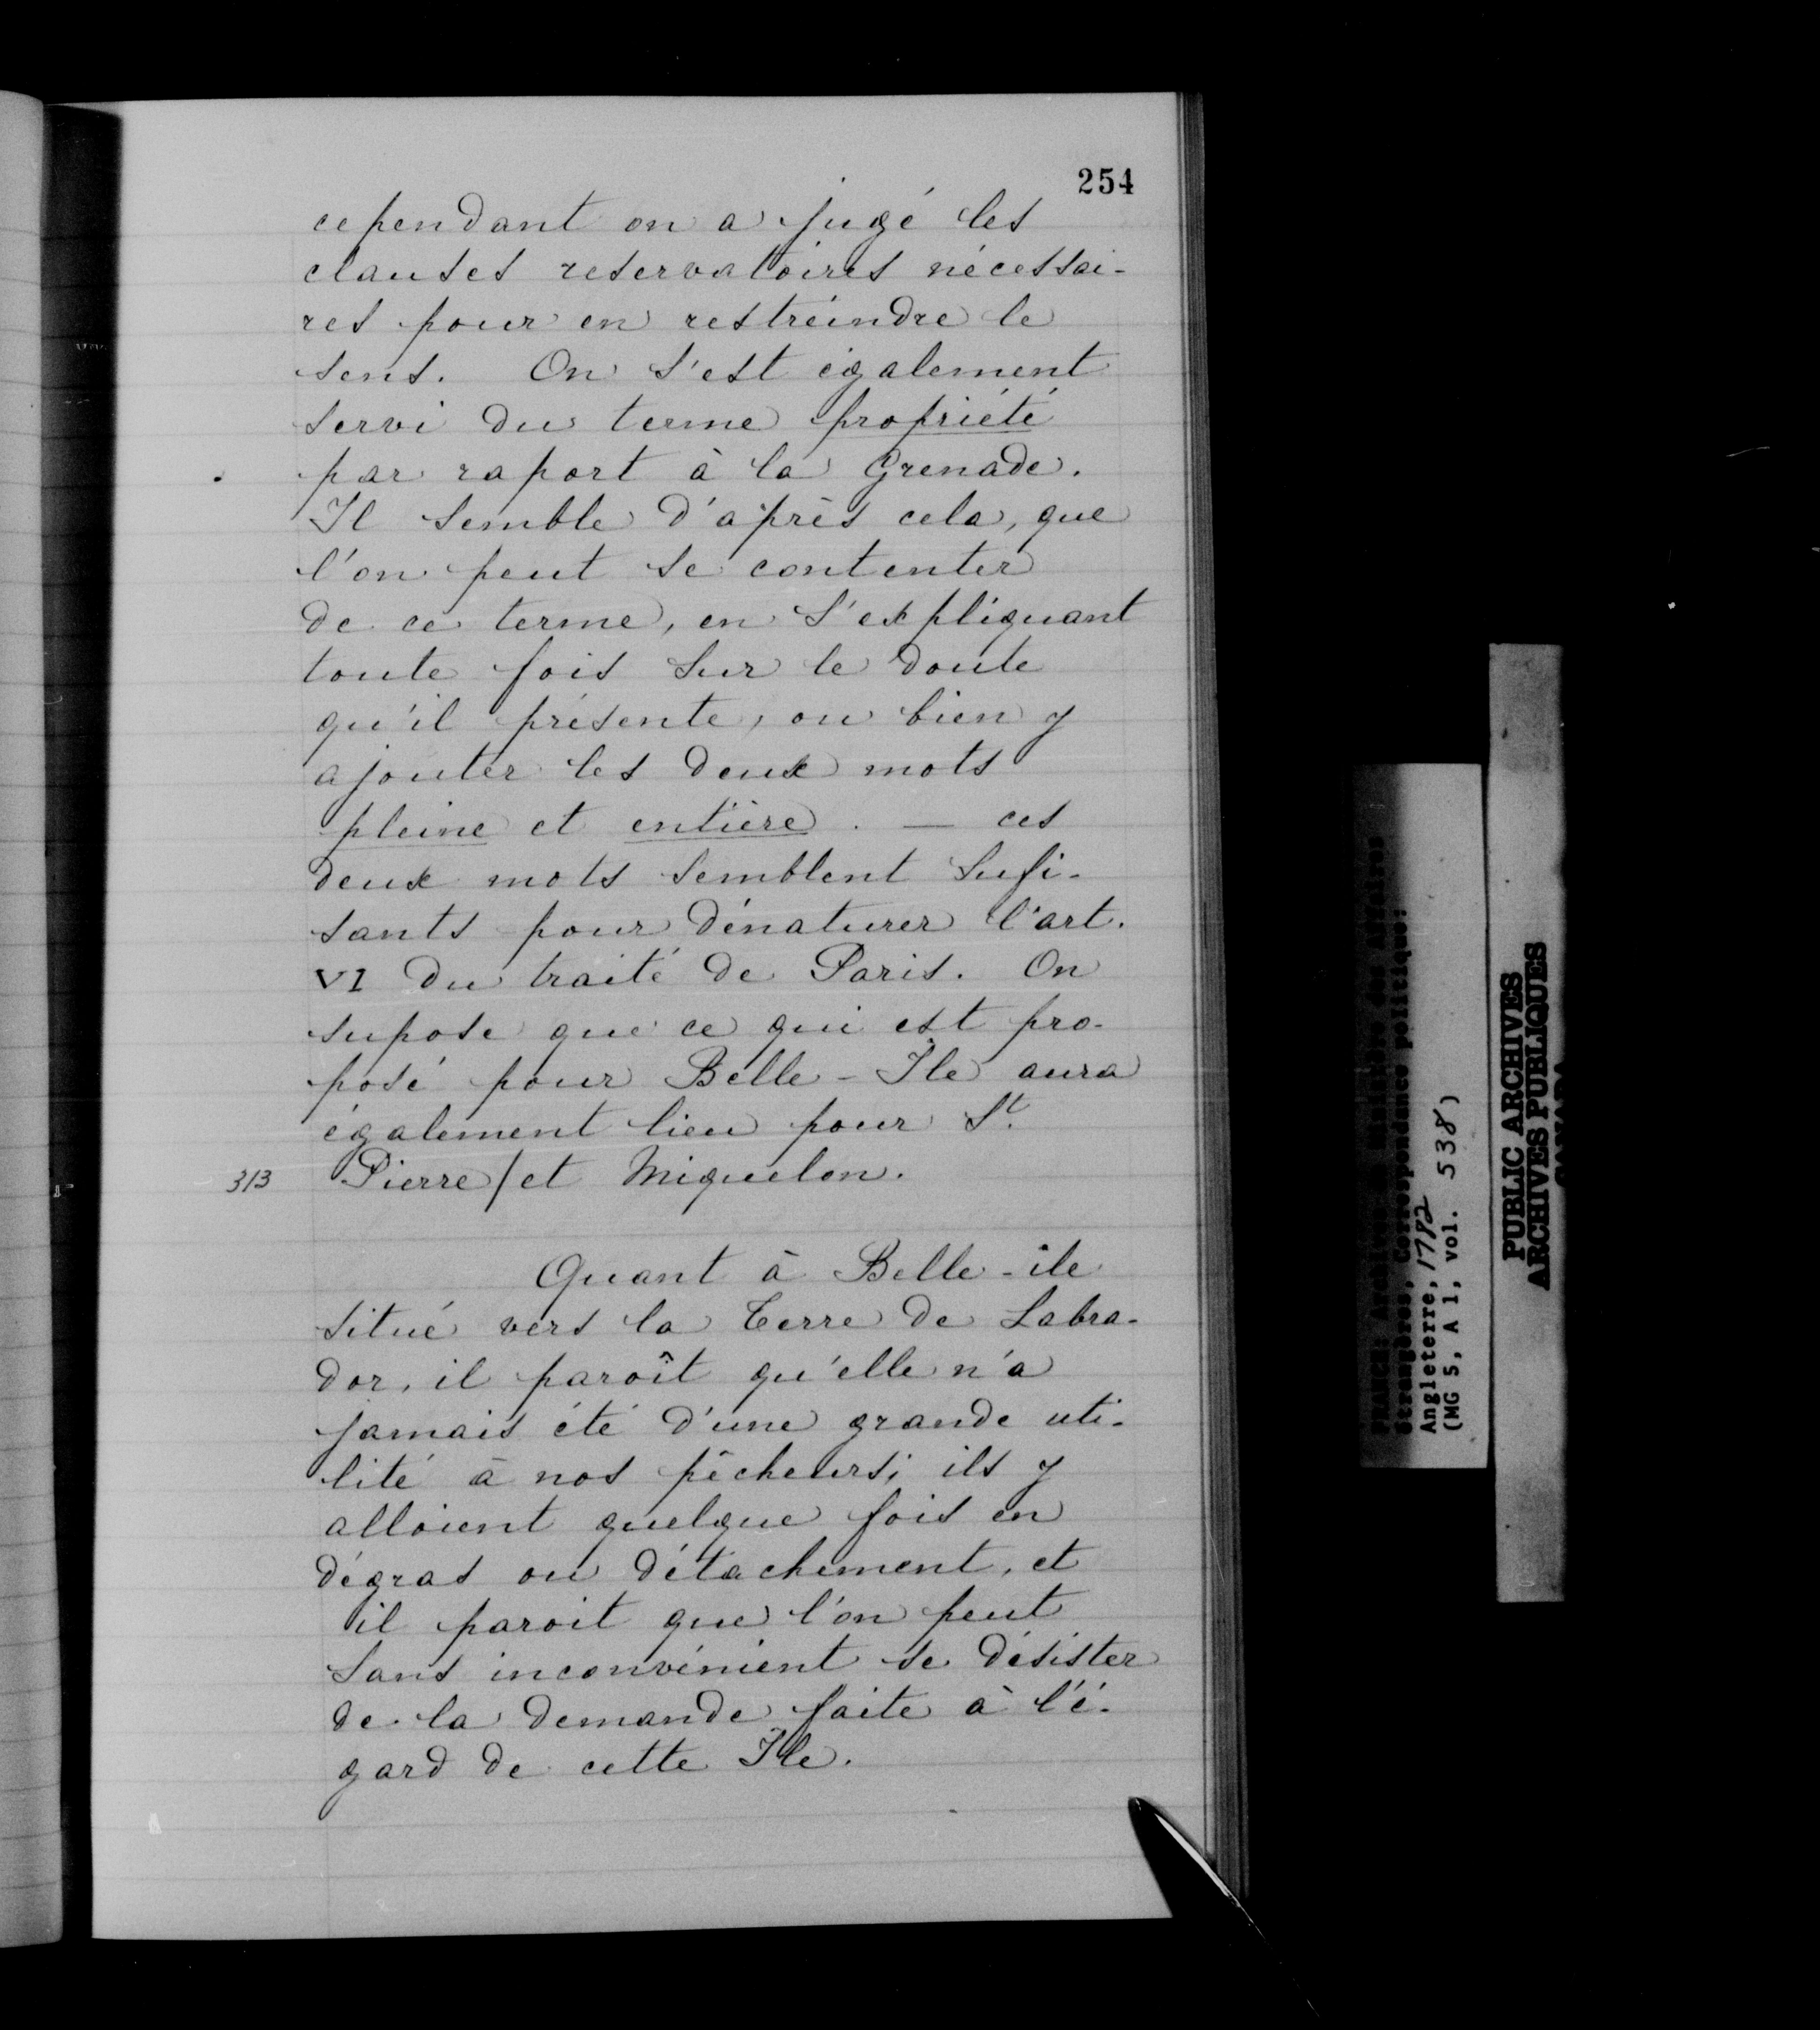 254
cependant on a jugé les
clauses reservatoires nécessai-
res pour en restreindre le
sens. On s'est également
servi du terme propriété
par raport à la Grenade.
Il semble d'après cela, que
l'on peut se contenter
de ce terme, en s'expliquant
toute fois sur le doute
qu'il présente, ou bien y
ajouter les deux mots
pleine et entière. — ces
deux mots semblent sufi-
sants pour dénaturer l'art.
VI du traité de Paris. On
supose que ce qui est pro-
posé pour Belle-Ile aura
également lieu pour St.
313 Pierre/et Miquelon.
Quant à Belle-île
situé vers la Terre de Labra-
dor, il paroît qu'elle n'a
jamais été d'une grande uti-
lité à nos pêcheurs; ils y
alloient quelque fois en
dégras ou détachement, et
il paroit que l'on peut
sans inconvénient se désister
de la demande faite à l'é-
gard de cette Ile.
Étrangères, Correspondance politique:
Angleterre, 1782
(MG 5, A 1, vol. 538)
PUBLIC ARCHIVES
ARCHIVES PUBLIQUES
CANADA